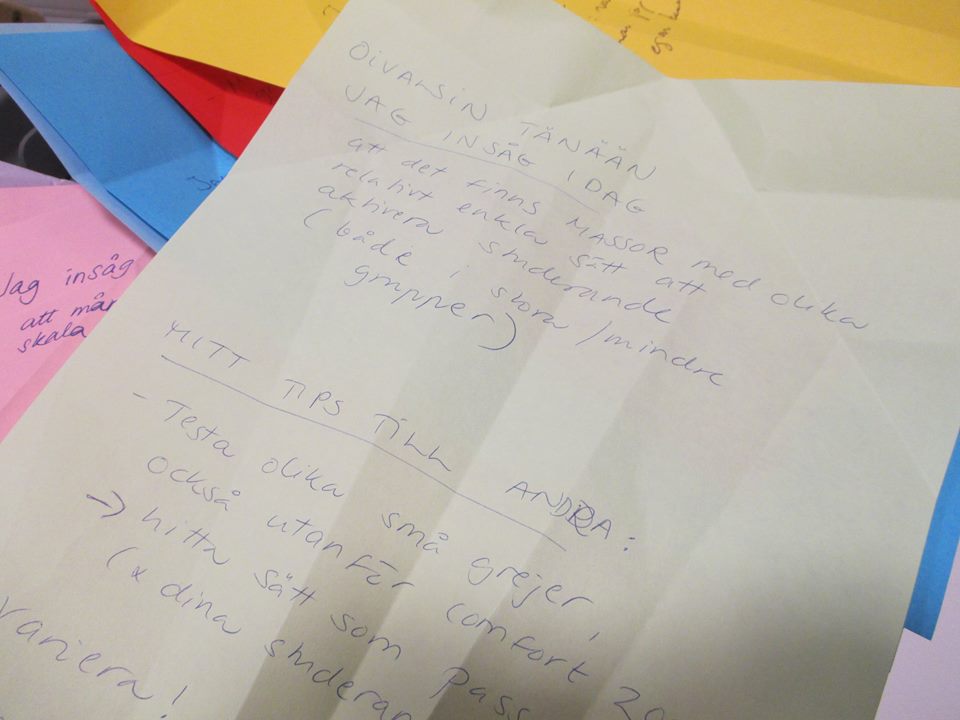 OIVALSIN TÄNÄÄN
JAG INSÅG IDAG
att det finns MASSOR med olika
relativt enkla sätt att
aktivera studerande
(både i stora/mindre
grupper)
MITT TIPS TILL ANDRA:
- Testa olika små grejer,
också utanför comfort zo
→ hitta sätt som pass
(x dina studeran
Variera!
Jag insåg
att mån
skala